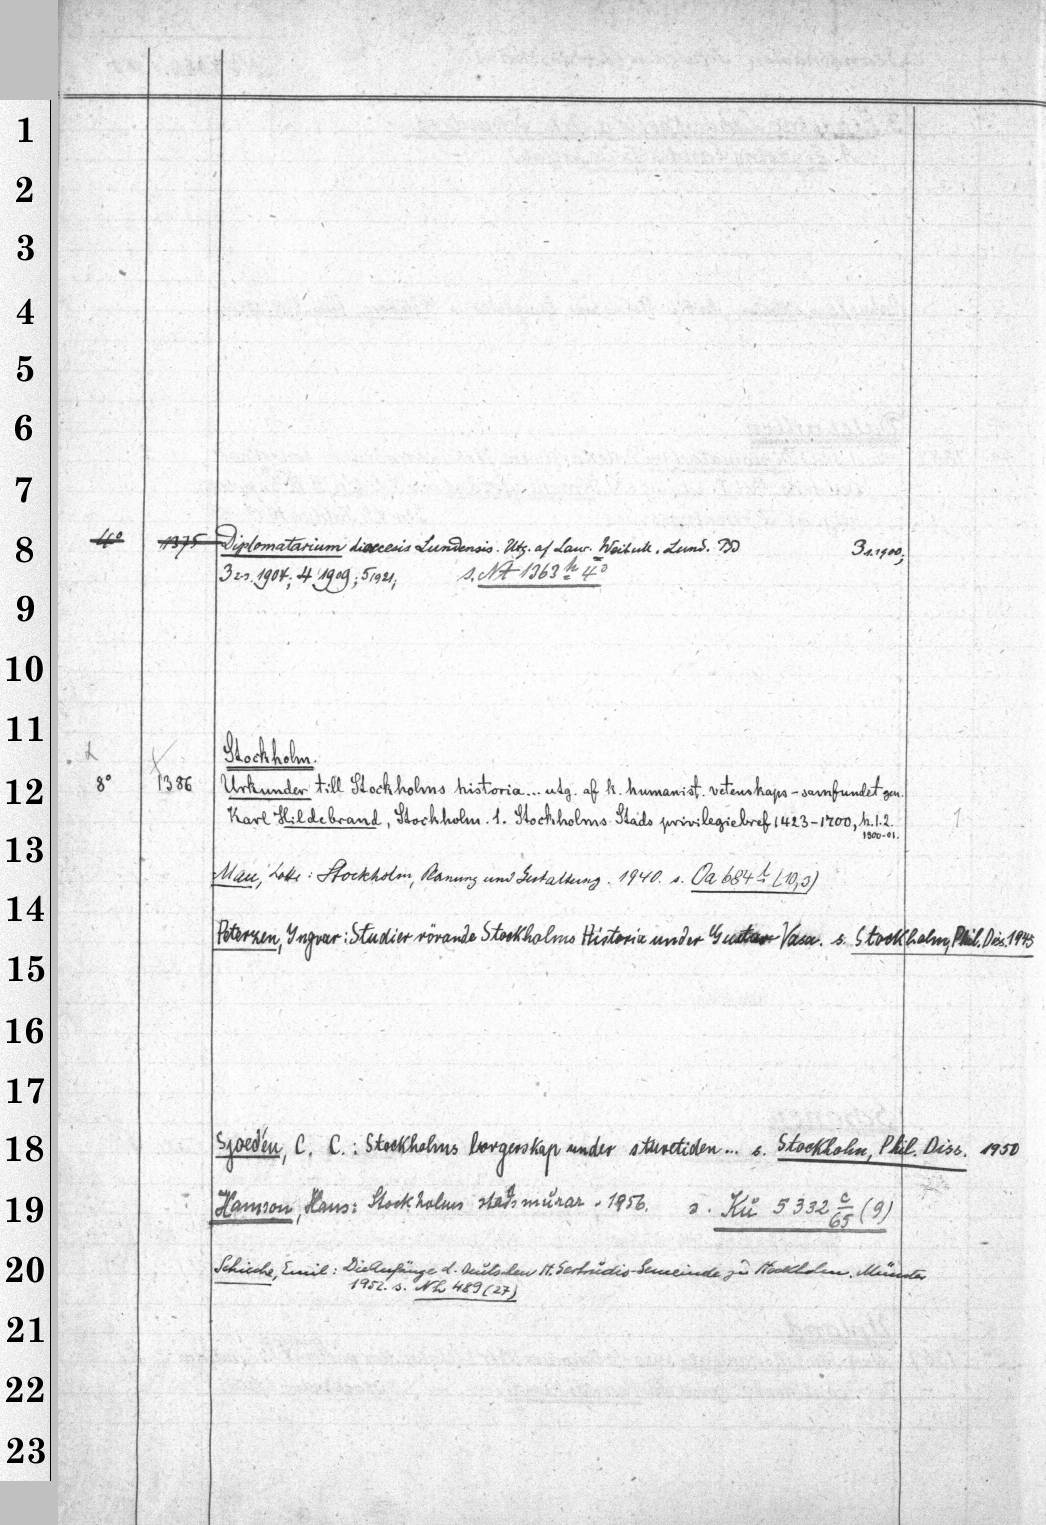 1
2
3
4
5
6
7
8
9
10
11
12
13
14
15
16
17
18
19
20
21
22
23
4° 1375 Diplomatarium dioecesis Lundensis. Utg. af Laur. Weibull. Lund. BD 3 1.1900;
3 2-3. 1904; 4 1909; 5 1921; s. NA 1363 h 4°
Stockholm.
8° 1386 Urkunder till Stockholms historia... utg. af k. humanist. vetenskaps-samfundet gm.
Karl Hildebrand, Stockholm. 1. Stockholms Stads privilegiebref 1423-1700, h.1.2. 1
1900-01.
Mau, Lotte: Stockholm, Planung und Gestaltung. 1940. s. Oa 684 (10,3)
Peterzen, Yngvar: Studier rörande Stockholms Historia under Gustav Vasa. s. Stockholm, Phil. Diss. 1945
Sjoedén, C. C.: Stockholms borgerskap under sturetiden... s. Stockholm, Phil. Diss. 1950
Hansson, Hans: Stockholms stadsmurar. 1956. s. Kü 5332 c/65 (9)
Schieche, Emil: Die Anfänge d. deutschen St. Gertrudis-Gemeinde zu Stockholm. Münster
1952. s. Nh 489 (27)